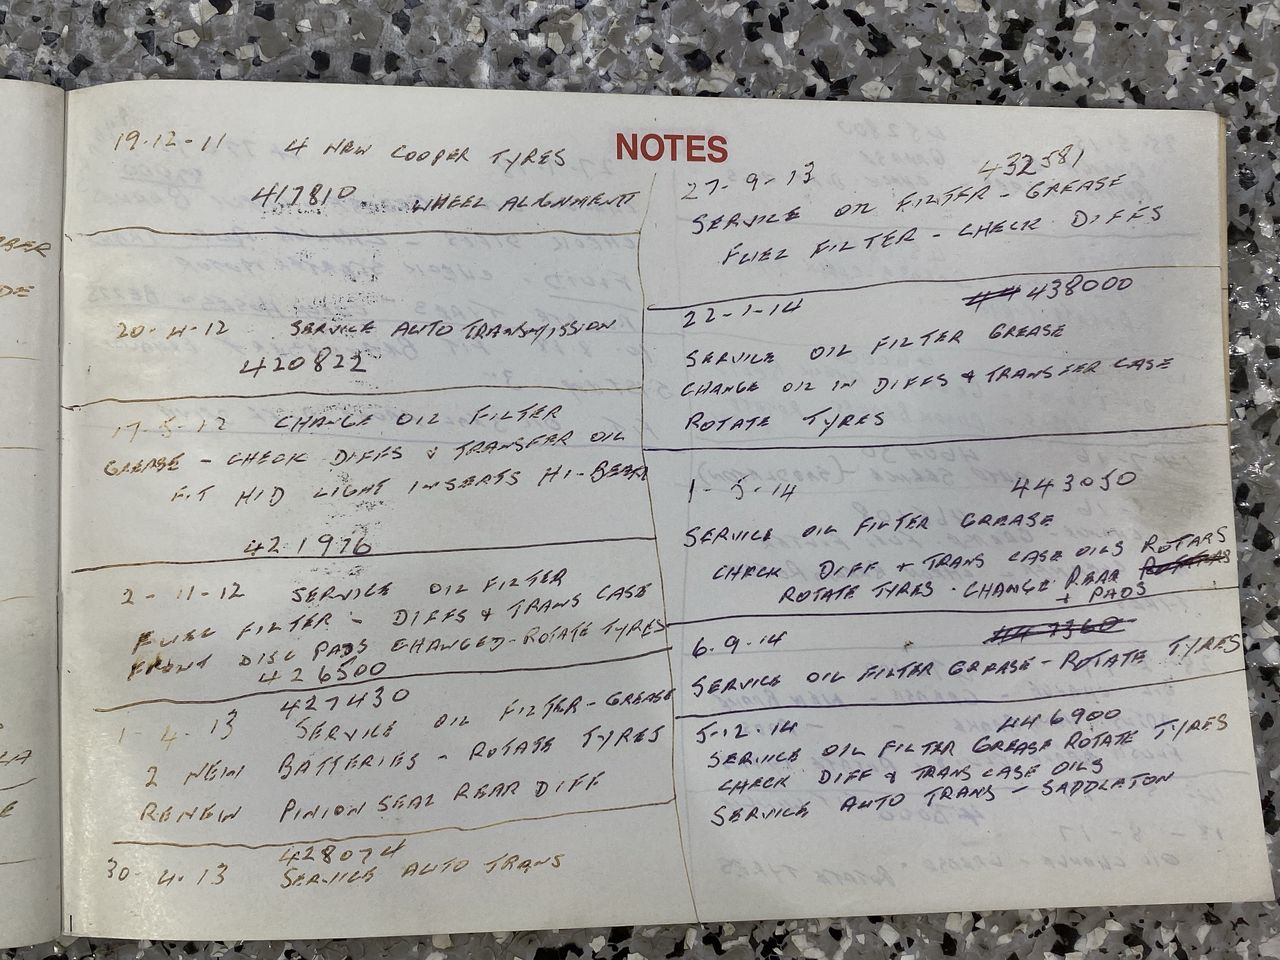 NOTES
19-12-11 4 NEW COOPER TYRES
417810 WHEEL ALIGNMENT
20-4-12 SERVICE AUTO TRANSMISSION
420822
17-5-12 CHANGE OIL FILTER
GREASE - CHECK DIFFS & TRANSFER OIL
FIT HID LIGHT INSERTS HI-BEAM
421976
2-11-12 SERVICE OIL FILTER
FUEL FILTER - DIFFS & TRANS CASE
FRONT DISC PADS CHANGED - ROTATE TYRES
426500
427430
1-4-13 SERVICE OIL FILTER - GREASE
2 NEW BATTERIES - ROTATE TYRES
RENEW PINION SEAL REAR DIFF
428074
30-4-13 SERVICE AUTO TRANS
27-9-13 432581
SERVICE OIL FILTER - GREASE
FUEL FILTER - CHECK DIFFS
22-1-14 438000
SERVICE OIL FILTER GREASE
CHANGE OIL IN DIFFS & TRANSFER CASE
ROTATE TYRES
1-5-14 443050
SERVICE OIL FILTER GREASE
CHECK DIFF & TRANS CASE OILS ROTARS
ROTATE TYRES - CHANGE REAR
+ PADS
6.9.14
SERVICE OIL FILTER GREASE - ROTATE TYRES
5-12-14 446900
SERVICE OIL FILTER GREASE ROTATE TYRES
CHECK DIFF & TRANS CASE OILS
SERVICE AUTO TRANS - SADDLETON